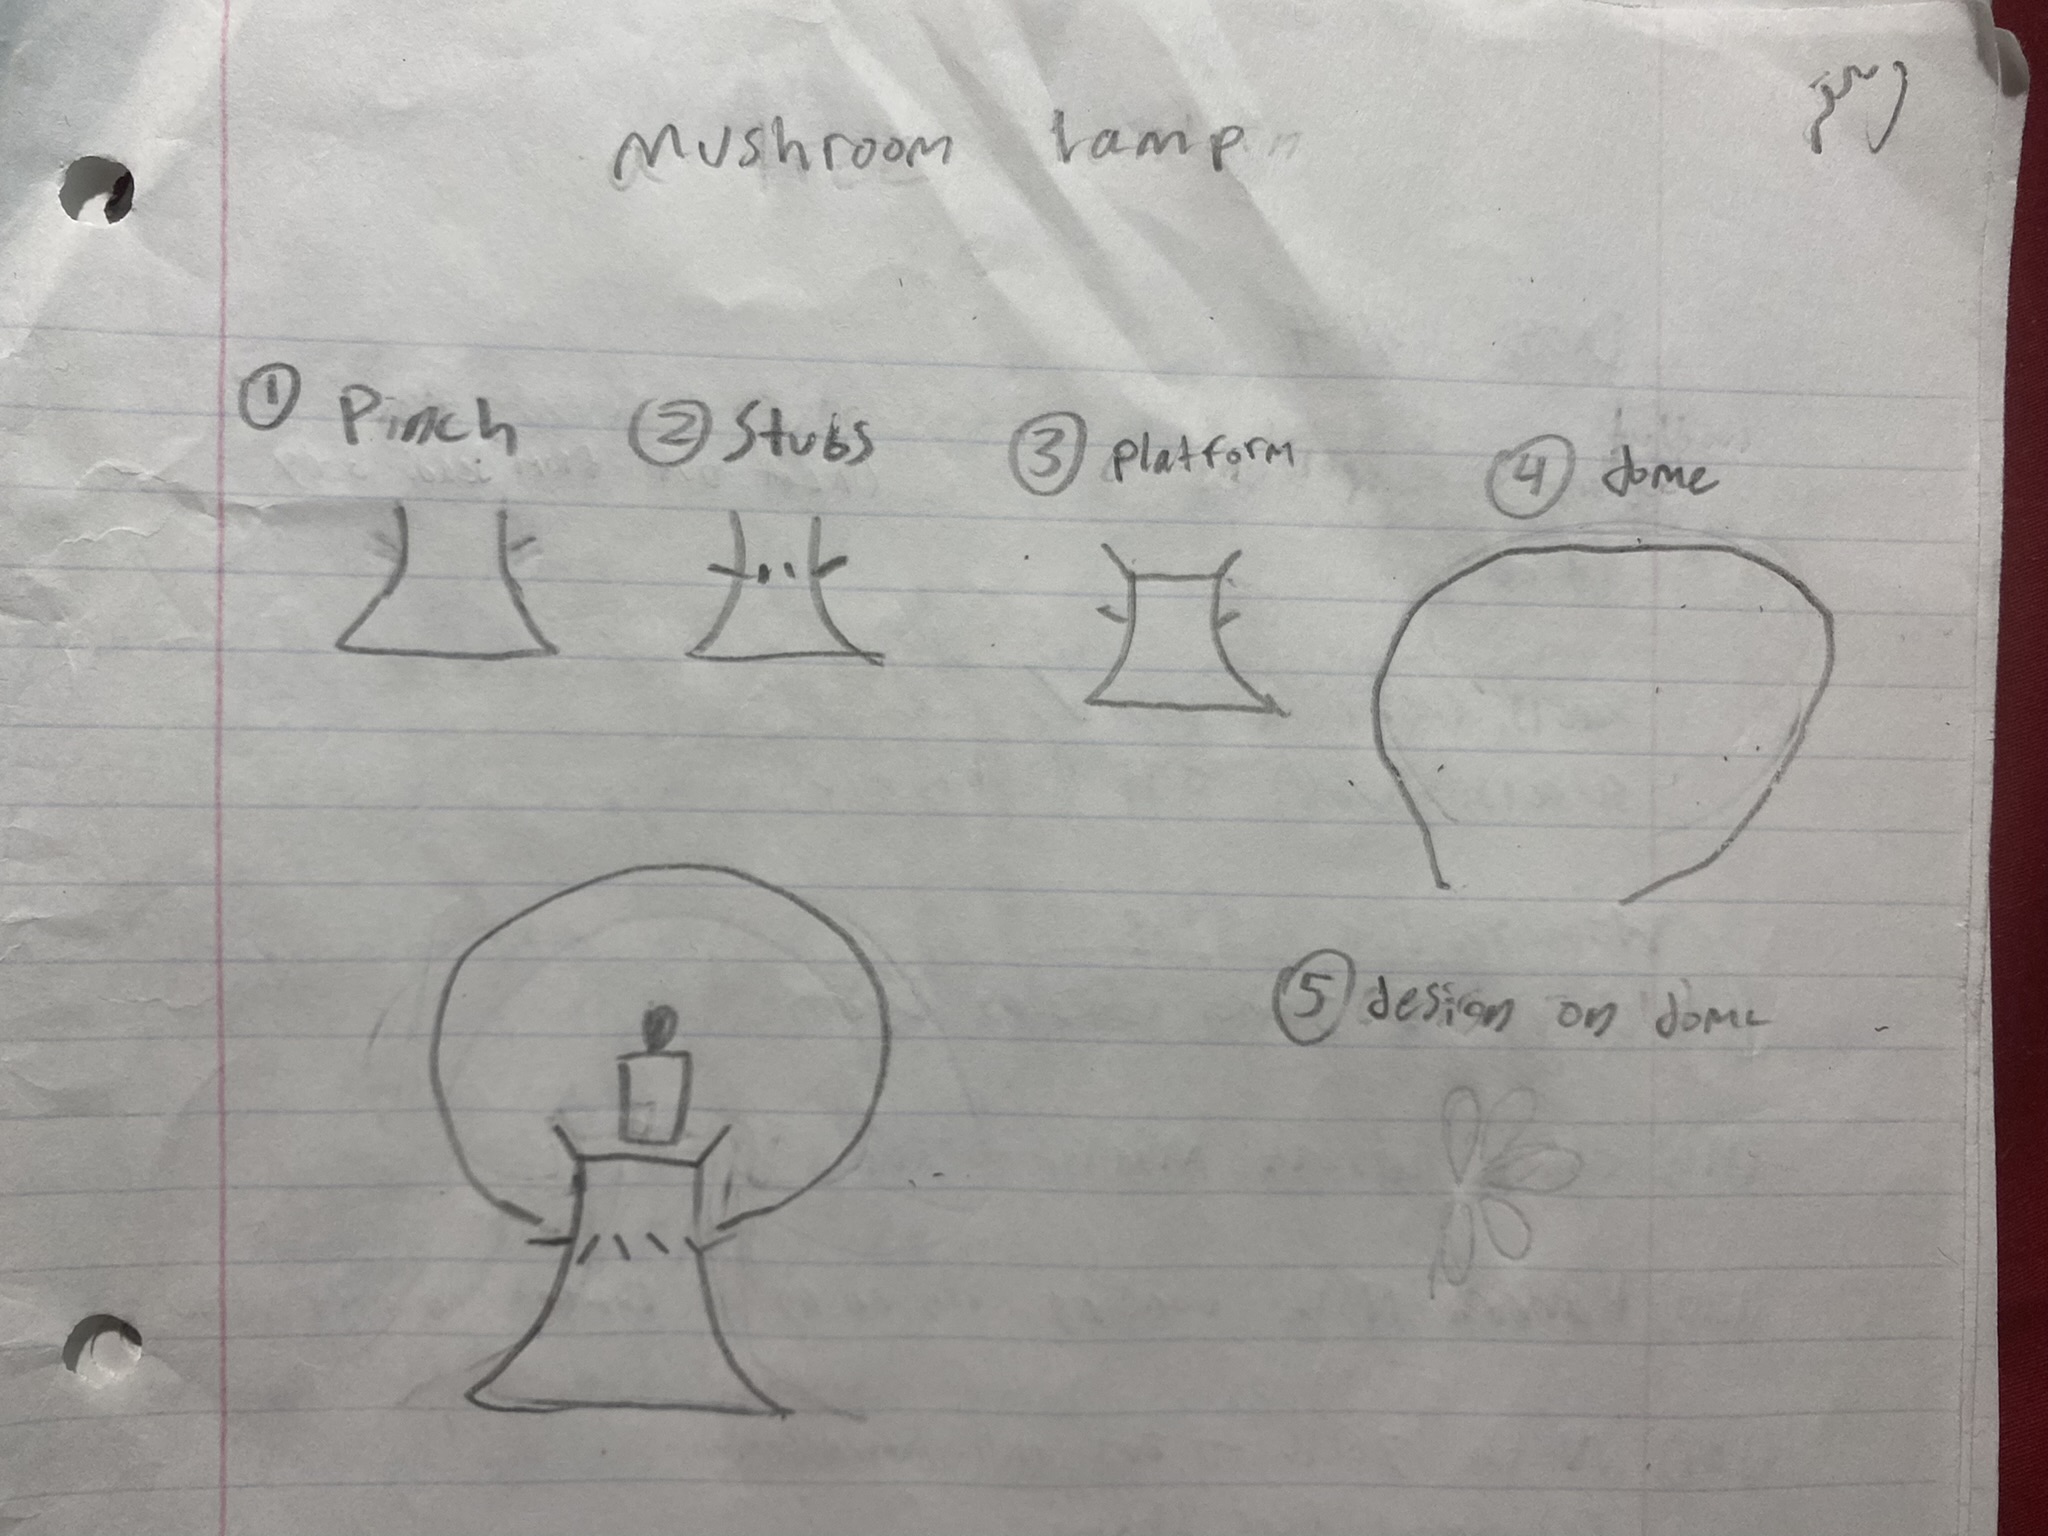 Mushroom lamp
① Pinch ② Stubs ③ platform ④ dome
⑤ design on dome